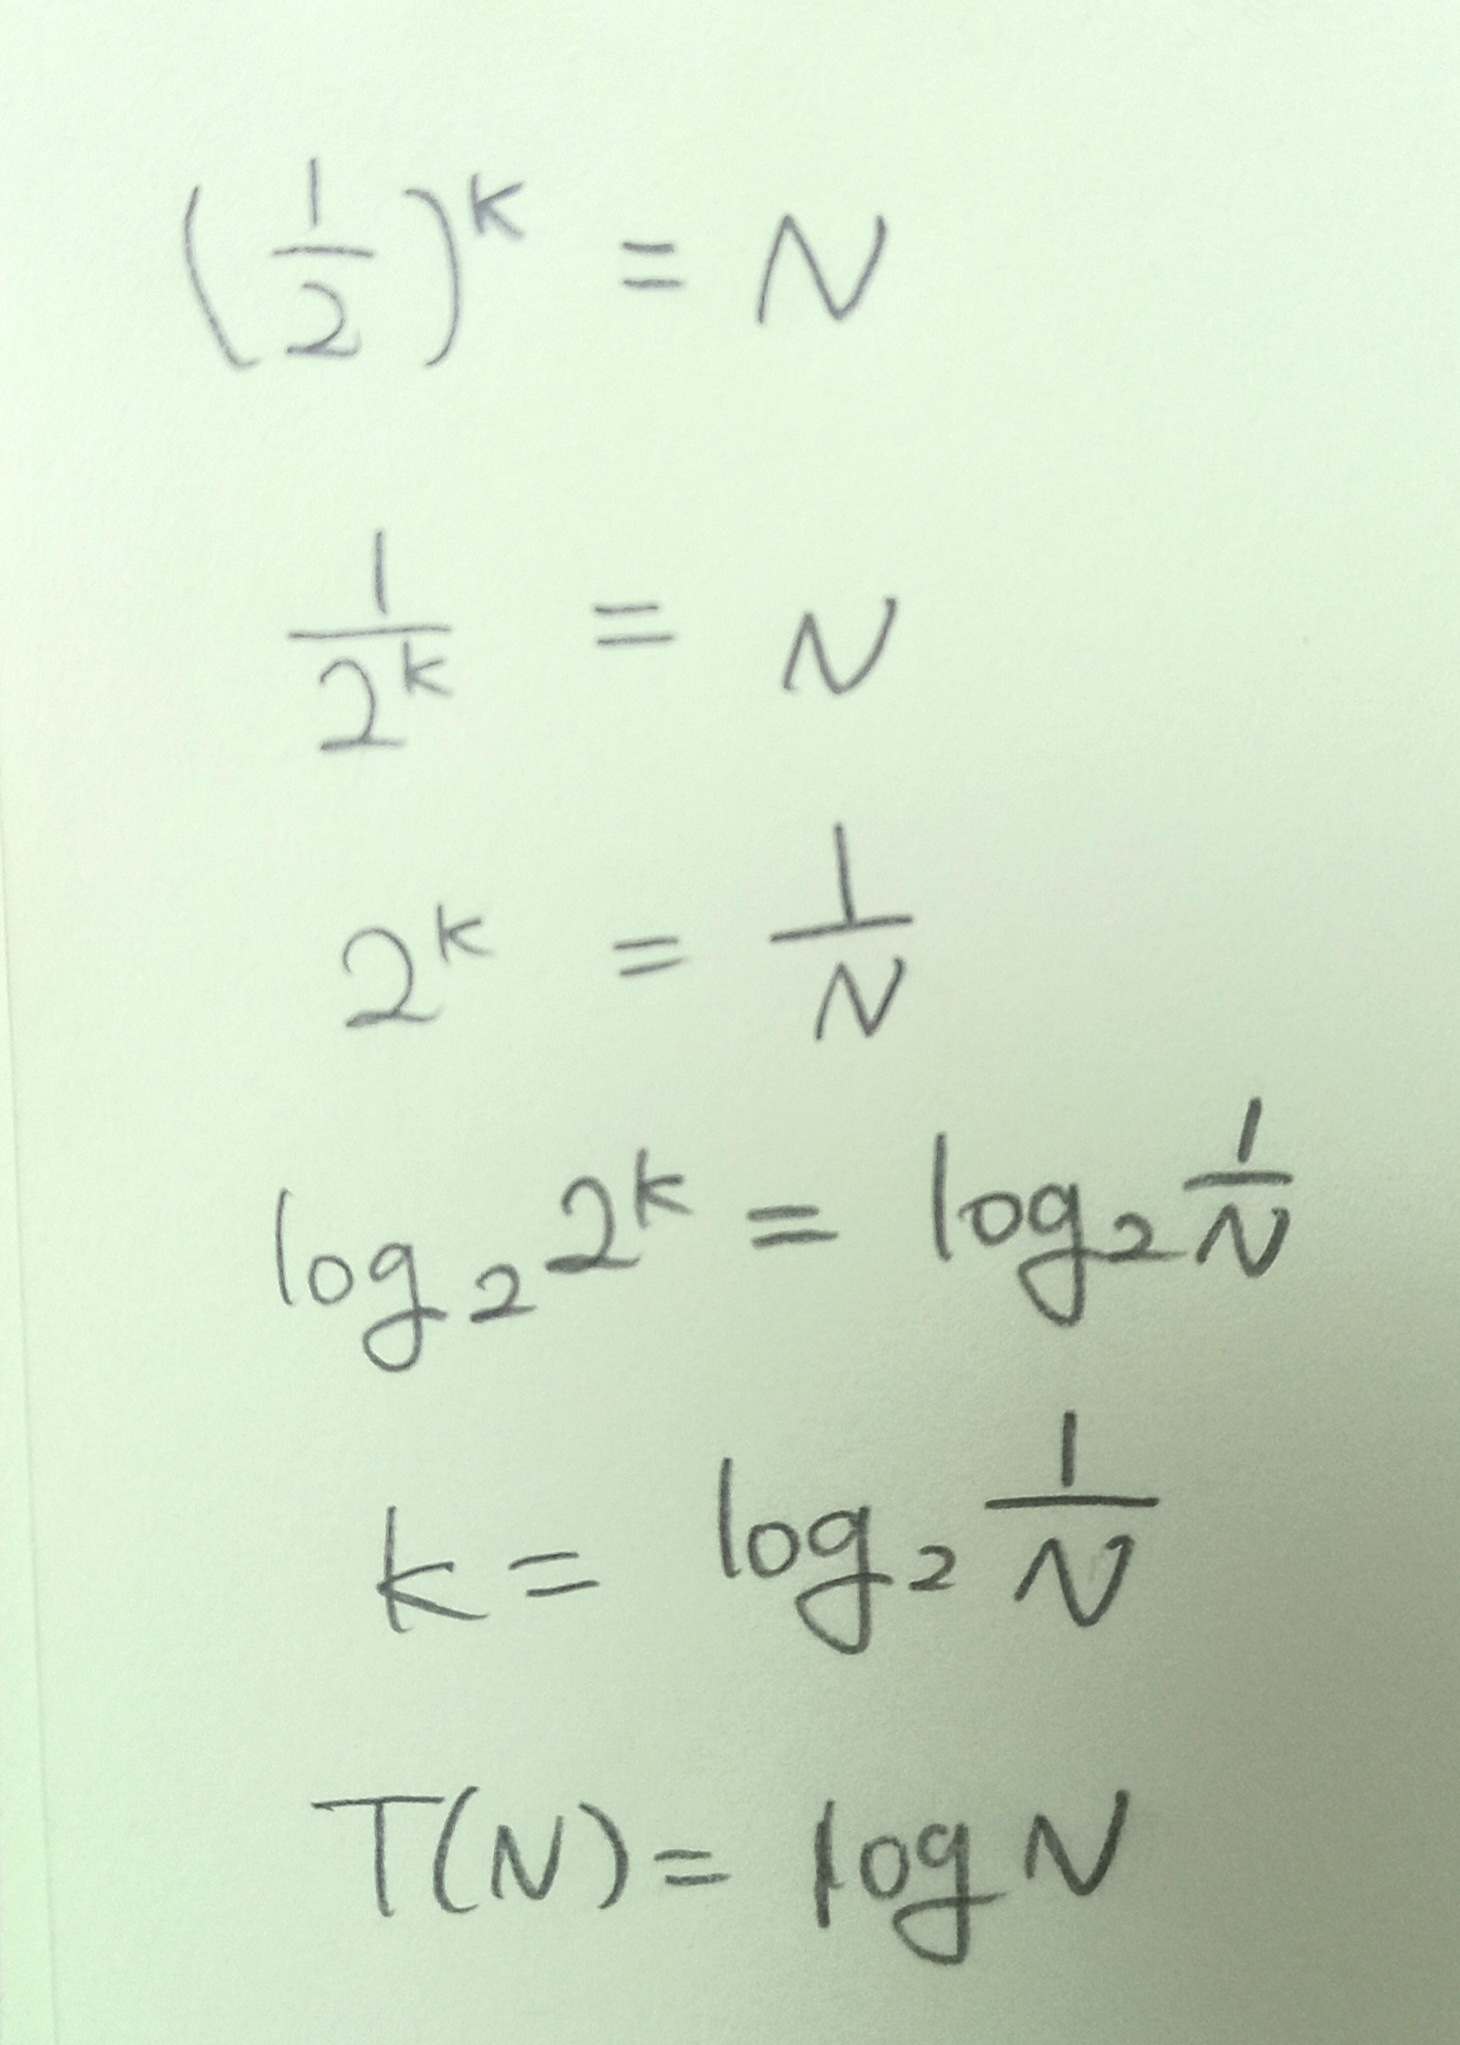 (1/2)^k = N
1/2^k = N
2^k = 1/N
log₂ 2^k = log₂ 1/N
k = log₂ 1/N
T(N) = log N